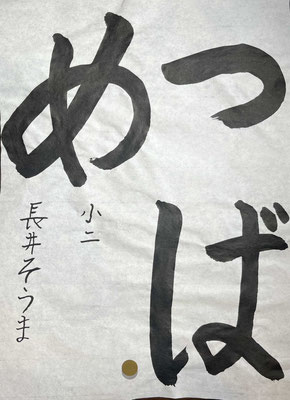 つば
め
小二
長井そうま